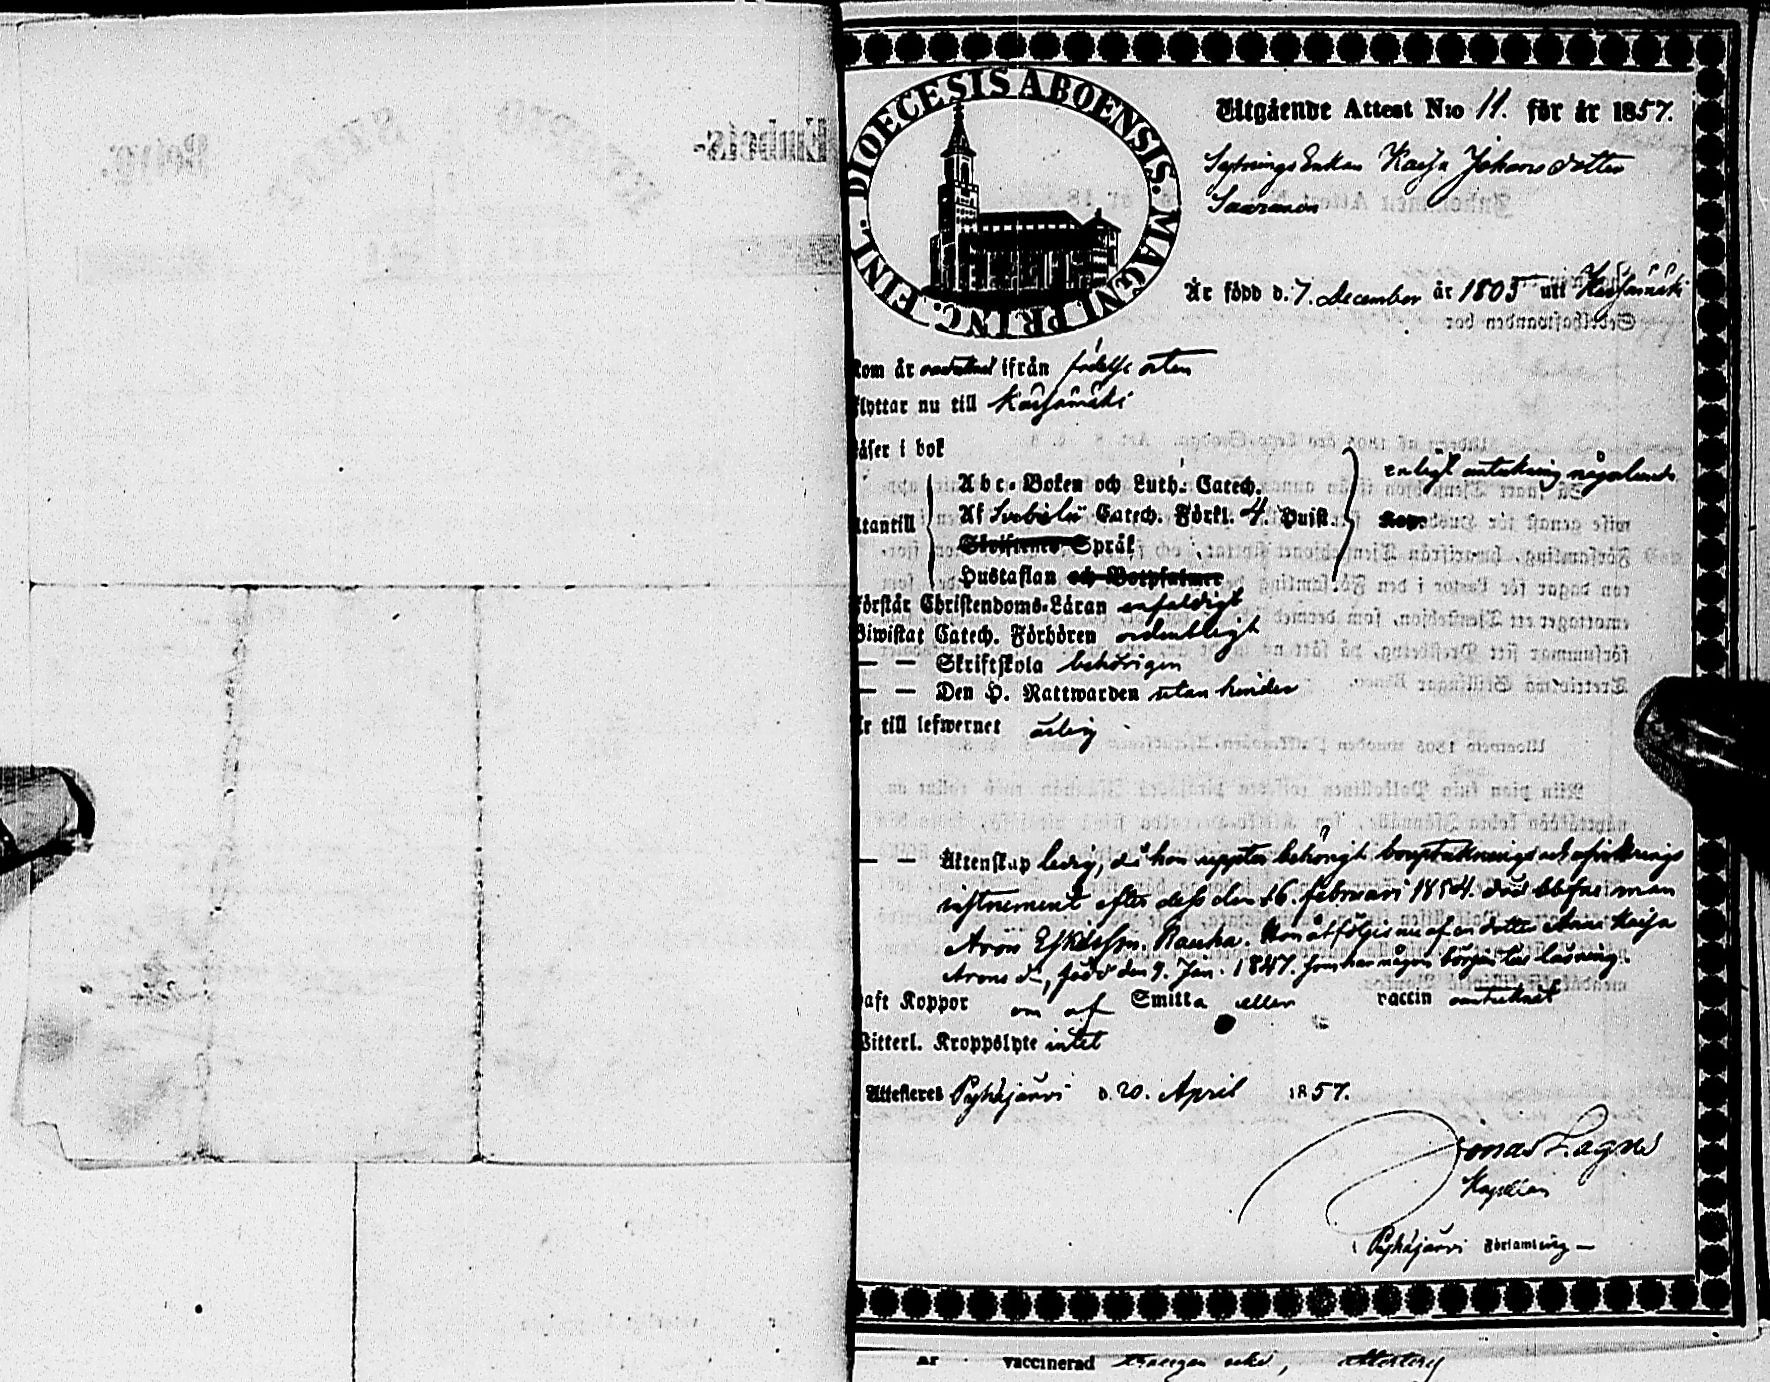 DIOECESIS ABOENSIS. MAGNI PRINC. FINL.
Utgående Attest N:o 11. för år 1857.
Sytnings Enkan Kaisa Johans dotter
Saaranen
Är född d. 7. December år 1805 uti Kärsämäki
kom år ifrån födelse orten
flyttar nu till Kärsämäki
läser i bok
utantill
Abc-Boken och Luth. Catech.
Af Svebelii Catech. Förkl. 4. Hufst.
Skriftenes Språk
Hustaflan och Botpsalmer
enligt anteckning någorlunda
Förstår Christendoms-Läran enfaldigt
Biwistat Catech. Förhören ordentligt
— — Skriftskola behörigen
— — Den H. Nattwarden utan hinder
Är till lefwernet ärlig
— — Äktenskap ledig, då hon uppter behörigt bouptecknings och afvittrings
instrument efter dess den 26. februari 1854. död blifne man
Aron Rauha. Hon åtföljes nu af en dotter Anna Kaisa
Arons d:r, född den 9. Jan. 1847. som har någon början till läsning.
Haft Koppor om af Smitta eller vaccin antecknat
Witterl. Kroppslyte intet
Attesteres Pyhäjärvi d. 20. April 1857.
Jonas Lagus
Kapellan
i Pyhäjärvi Församling —
är vaccinerad